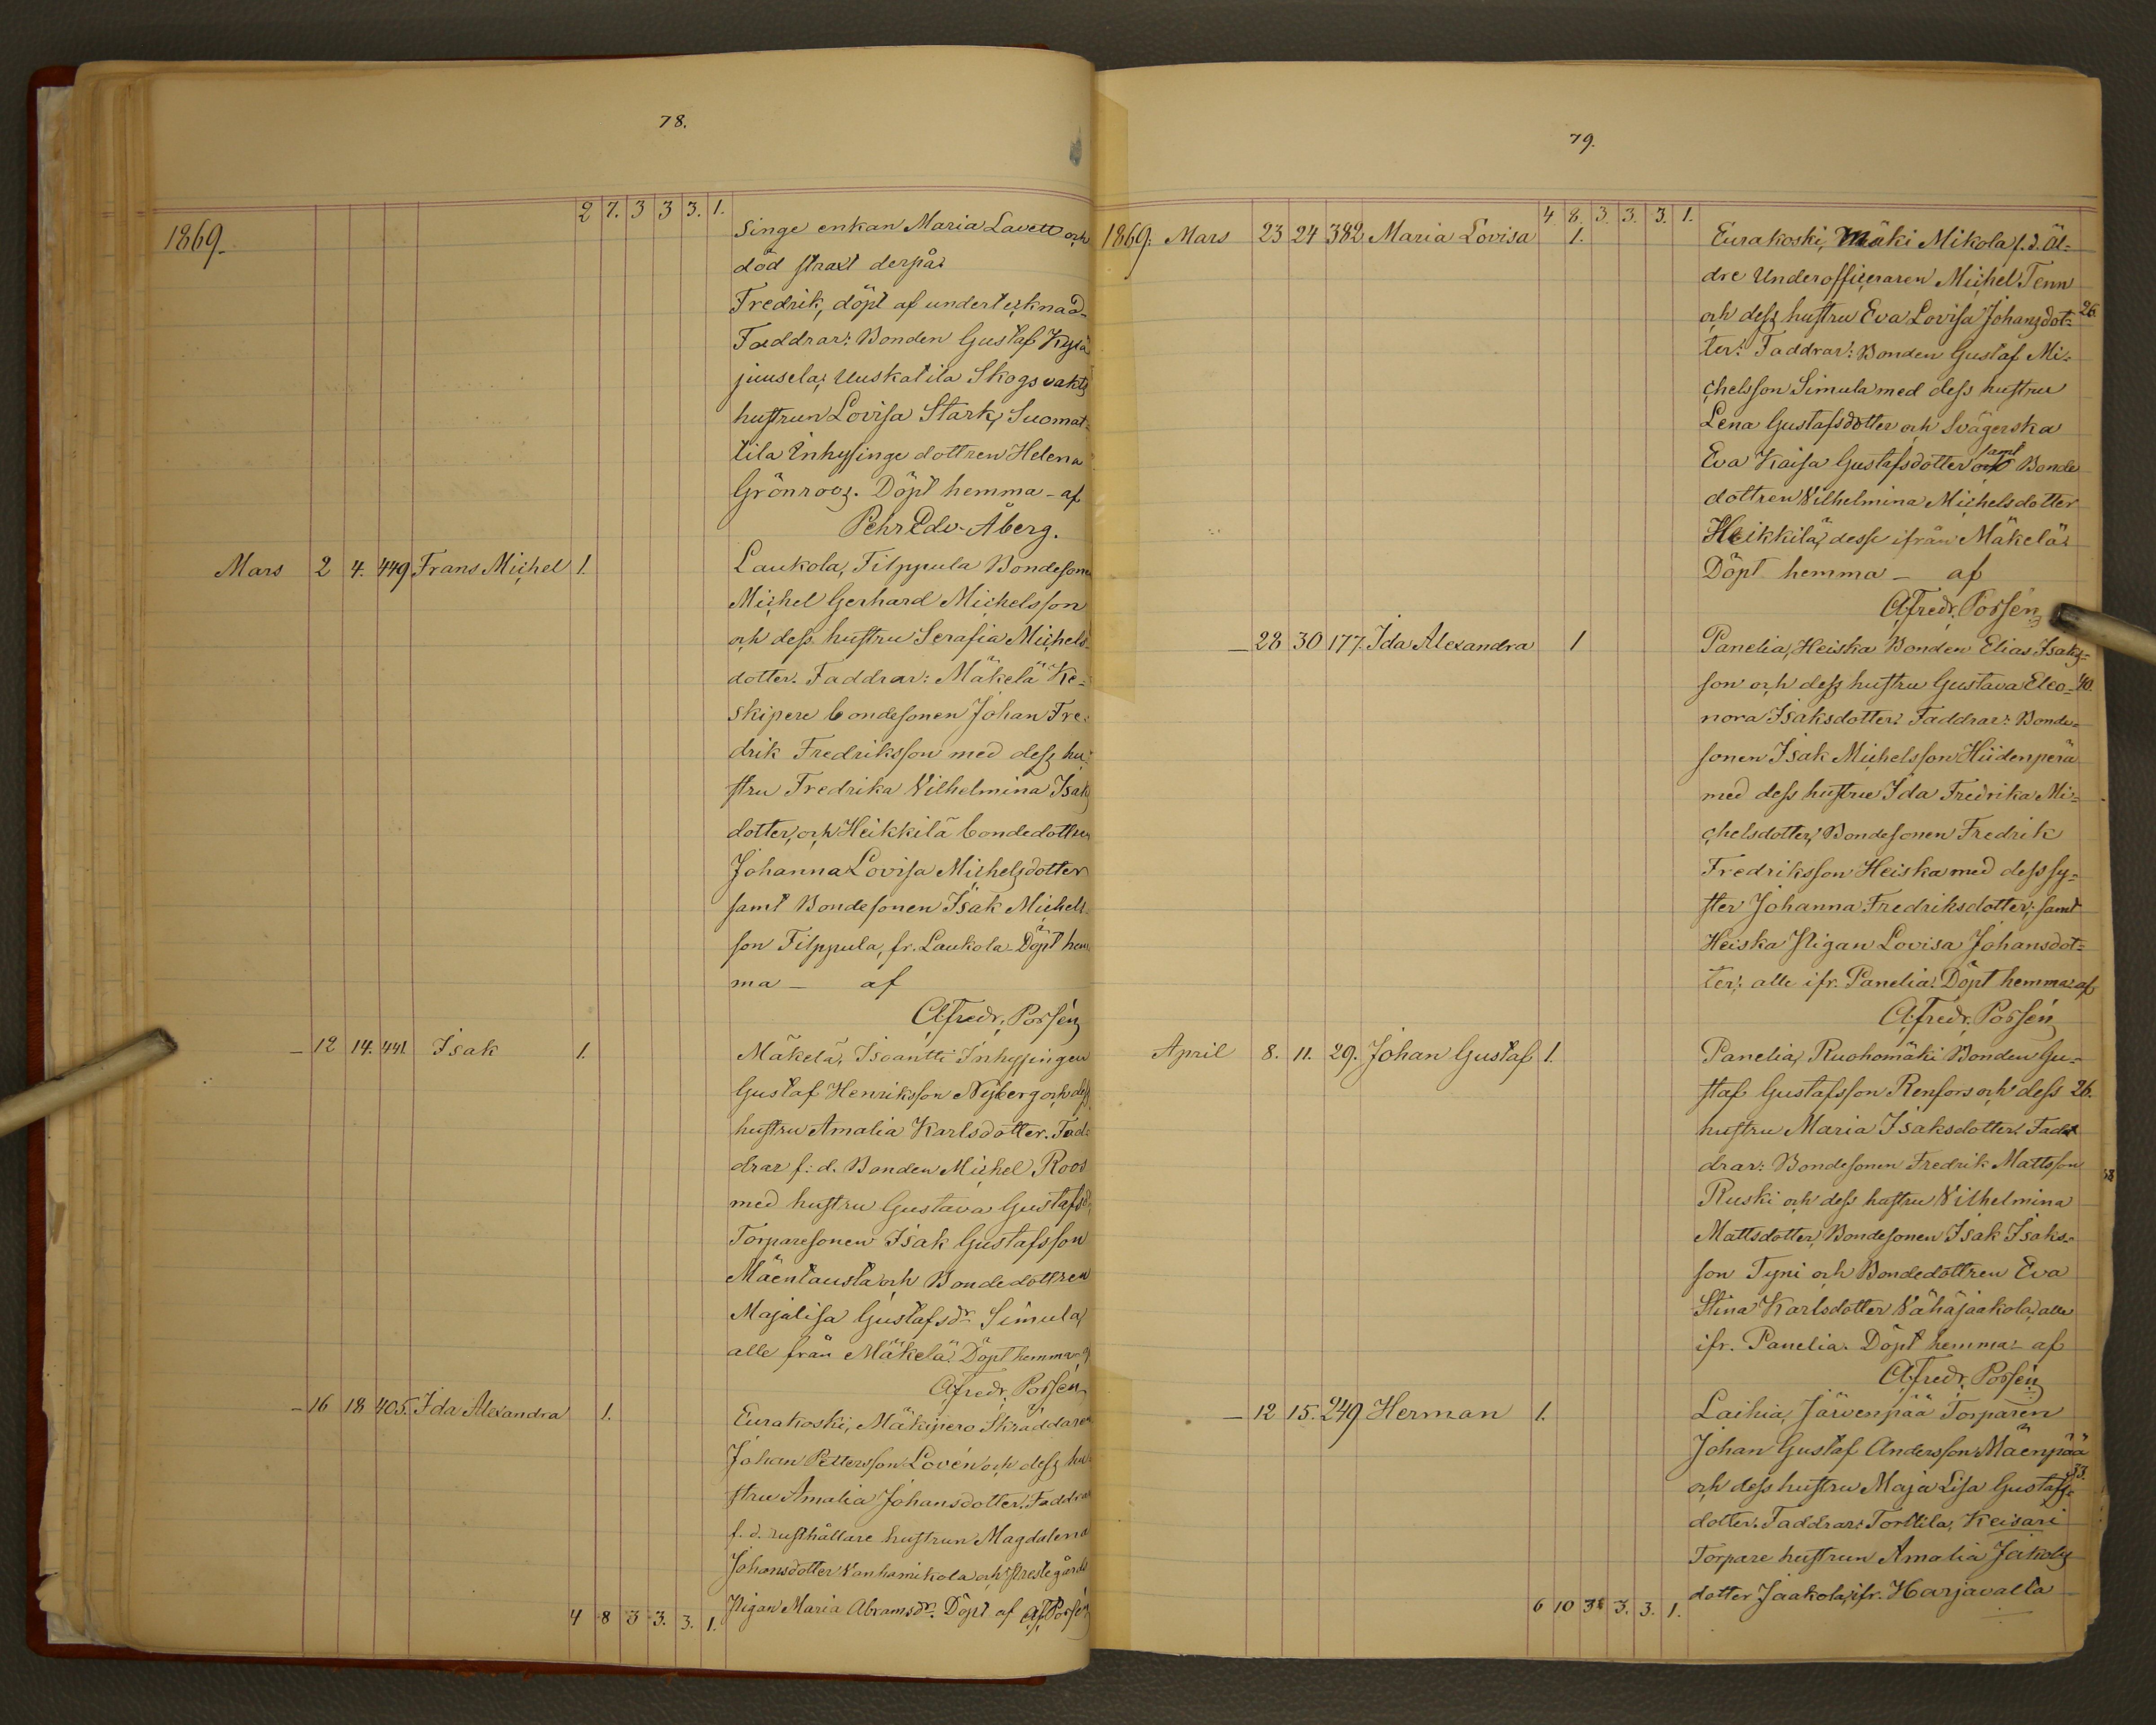 78.
2 7. 3 3 3. 1.
1869.
Singe enkan Maria Lavett och
död straxt derpå.
Fredrik, döpt af undertecknad.
Faddrar: Bonden Gustaf Kylä
juusela, Uuskatila Skogsvakts
hustrun Lovisa Stark, Suomat-
tila Inhysinge dottren Helena
Grönroos. Döpt hemma - af
Pehr Edv. Åberg.
Mars 2 4. 449 Frans Michel 1. Laukola, Filppula Bondesonen
Michel Gerhard Michelsson
och dess hustru Serafia Michels-
dotter. Faddrar: Mäkelä Ke-
skipere bondesonen Johan Fre-
drik Fredriksson med dess hu-
stru Fredrika Vilhelmina Isaks
dotter, och Heikkilä bondedottren
Johanna Lovisa Michelsdotter
samt Bondesonen Isak Michels-
son Filppula, fr. Laukola. Döpt hem
ma - af
A. Fredr. Porsén
- 12 14. 441. Isak 1. Mäkelä, Isoantti Inhysingen
Gustaf Henriksson Nyberg och dess
hustru Amalia Karlsdotter. Fad-
drar f. d. Bonden Michel Roos
med hustru Gustava Gustafsd.
Torparesonen Isak Gustafsson
Mäentausta och Bondedottren
Majalisa Gustafsdr Simula,
alle från Mäkelä. Döpt hemma af
A. Fredr. Porsén
- 16 18 405. Ida Alexandra 1. Eurakoski, Mäkipero Skräddaren
Johan Pettersson Lovén och dess hu-
stru Amalia Johansdotter. Faddrar
f. d. rusthållare hustrun Magdalena
Johansdotter Vanhamikola och Prestegårds
Pigan Maria Abramsdr. Döpt af A. F. Porsén
4 8 3 3. 3. 1.
79.
4 8. 3. 3. 3. 1.
1869. Mars 23 24 382 Maria Lovisa 1. Eurakoski, Mäki Mikola f. d. Äl-
dre Underofficeraren Michel Tenn
och dess hustru Eva Lovisa Johansdot- 26.
ter. Faddrar: Bonden Gustaf Mi-
chelsson Simula med dess hustru
Lena Gustafsdotter och Svägerska
Eva Kaisa Gustafsdotter samt Bonde
dottren Vilhelmina Michelsdotter
Heikkilä, desse ifrån Mäkelä.
Döpt hemma - af
A. Fredr. Porsén
- 28 30 177. Ida Alexandra 1 Panelia, Heiska Bonden Elias Isaks-
son och dess hustru Gustava Eleo- 40.
nora Isaksdotter. Faddrar: Bonde-
sonen Isak Michelsson Hiidenperä
med dess hustru Ida Fredrika Mi-
chelsdotter, Bondesonen Fredrik
Fredriksson Heiska med dess sy-
ster Johanna Fredriksdotter, samt
Heiska Pigan Lovisa Johansdot-
ter, alle ifr. Panelia. Döpt hemma af
A. Fredr. Porsén
April 8. 11. 29. Johan Gustaf 1. Panelia, Ruohomäki Bonden Gu-
staf Gustafsson Renfors och dess 26.
hustru Maria Isaksdotter. Fad-
drar: Bondesonen Fredrik Mattsson
Ruski och dess hustru Vilhelmina
Mattsdotter, Bondesonen Isak Isaks-
son Tyni och Bondedottren Eva
Stina Karlsdotter Vähäjaakola, alle
ifr. Panelia. Döpt hemma - af
A. Fredr. Porsén
- 12 15. 249 Herman 1. Laihia, Järvenpää Torparen
Johan Gustaf Andersson Mäenpää
och dess hustru Maja Lisa Gustafs- 33.
dotter. Faddrar: Torttila, Keisari
Torpare hustrun Amalia Jakobs
dotter Jaakola, ifr. Harjavalta
6 10 3 3. 3. 1.